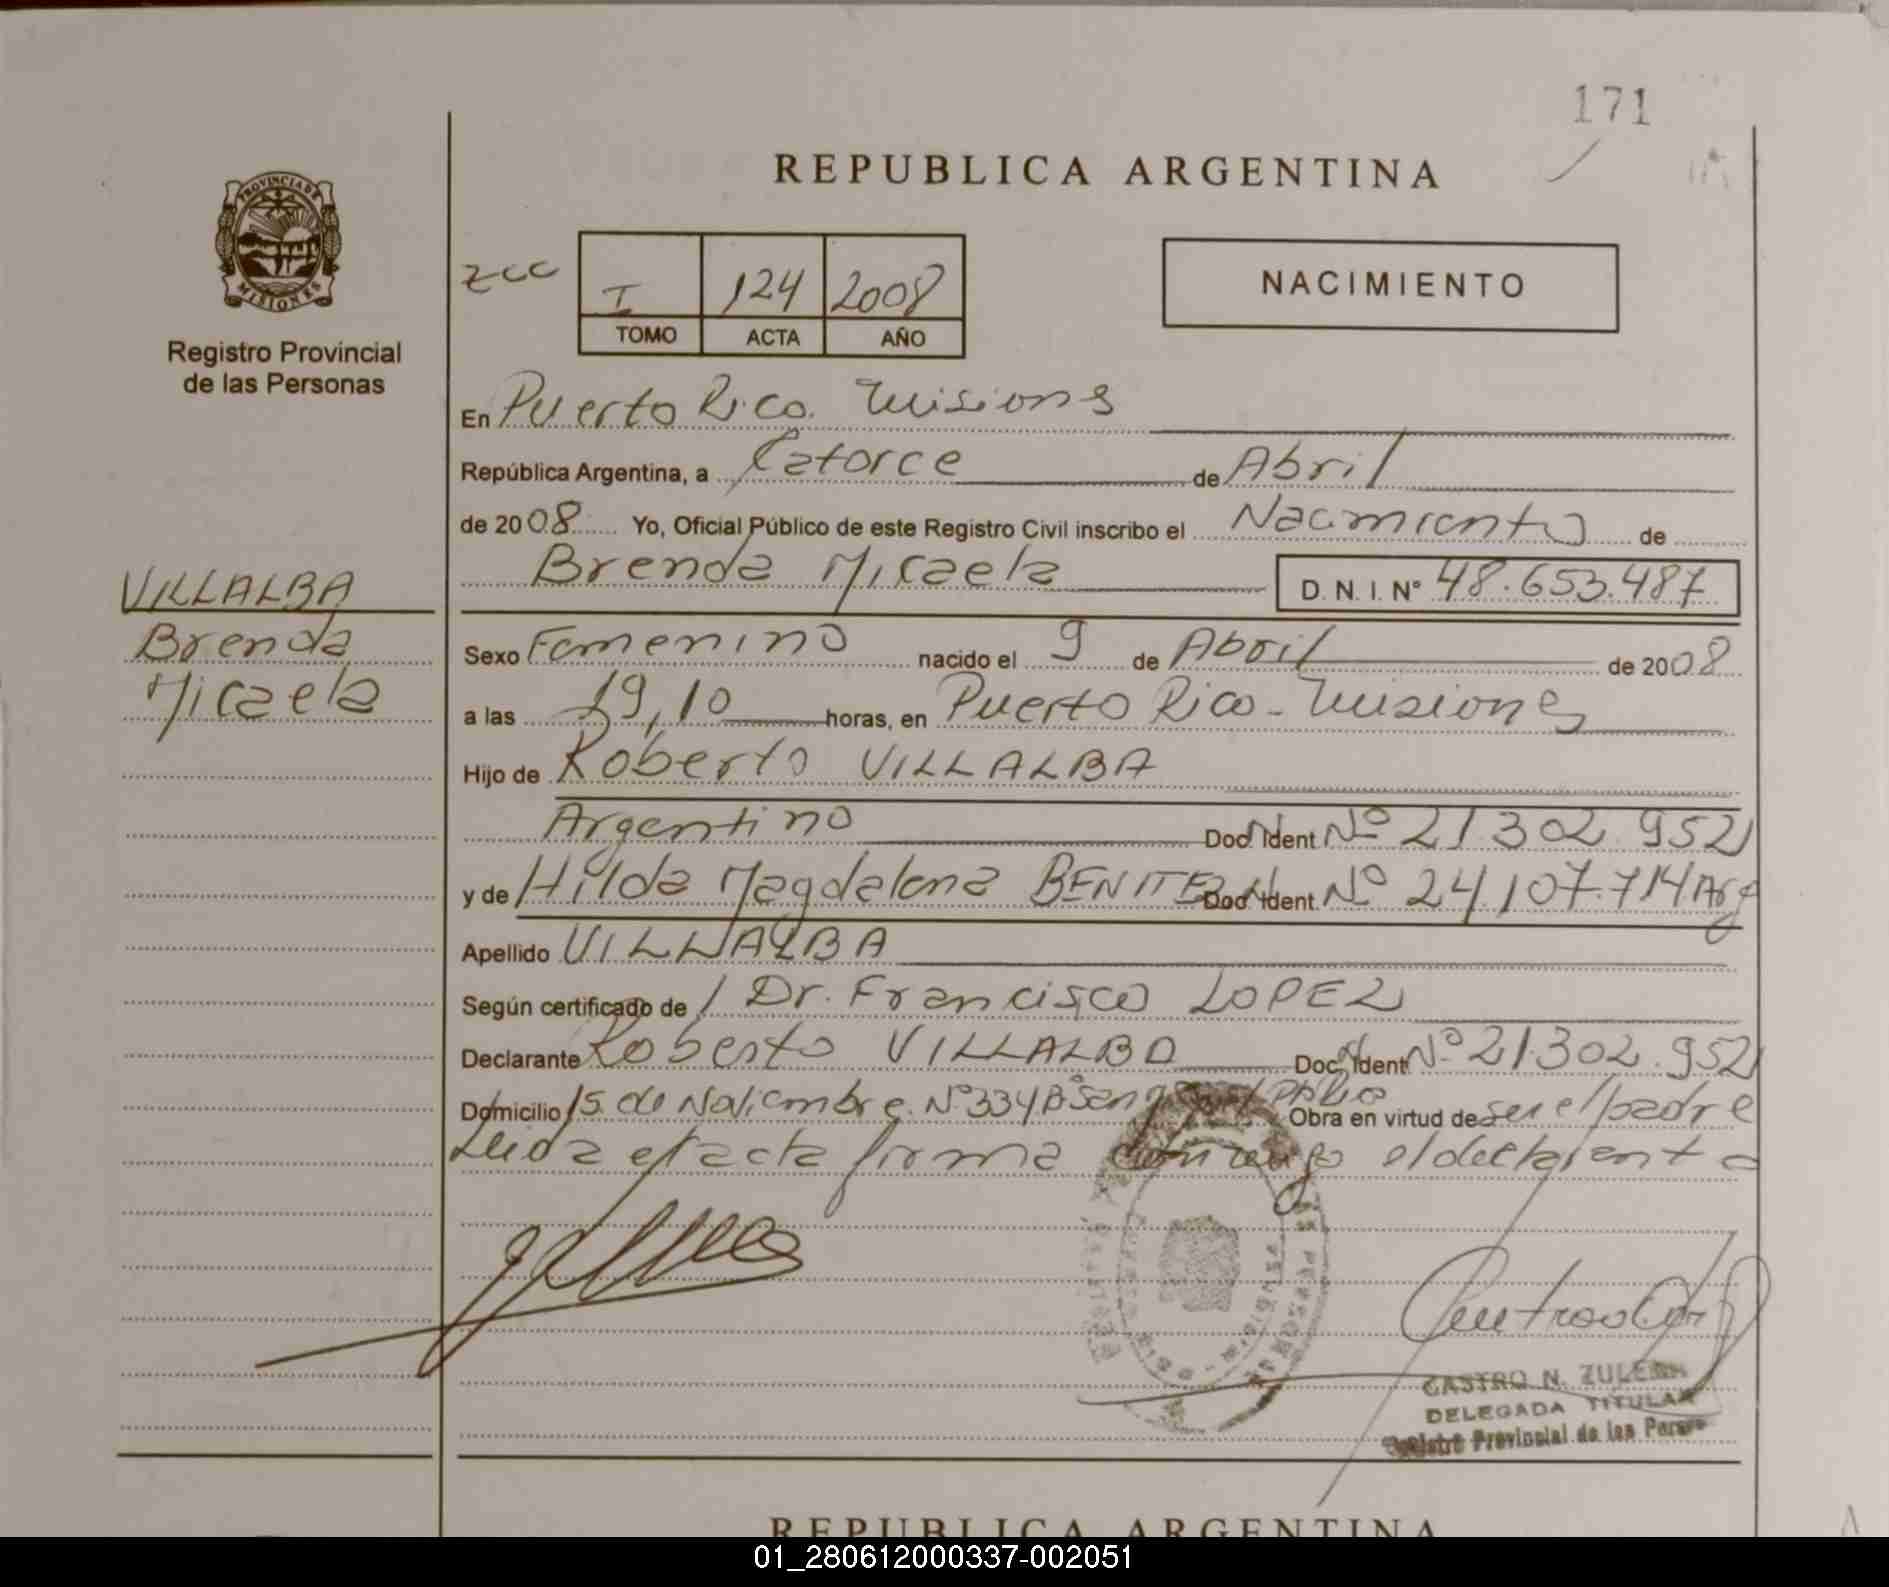 171
REPUBLICA ARGENTINA
PROVINCIA DE
MISIONES
Registro Provincial
de las Personas
zcc
I 124 2008
TOMO ACTA AÑO
NACIMIENTO
En Puerto Rico. Misiones
República Argentina, a Catorce de Abril
de 2008 Yo, Oficial Público de este Registro Civil inscribo el Nacimiento de
Brenda Micaela D.N.I. Nº 48.653.487
VILLALBA
Brenda
Micaela
Sexo Femenino nacido el 9 de Abril de 2008
a las 19,10 horas, en Puerto Rico - Misiones
Hijo de Roberto VILLALBA
Argentino Doc. Ident Nº 21.302.952
y de Hilda Magdalena BENITEZ Doc. Ident. Nº 24.107.714 Arg
Apellido VILLALBA
Según certificado de / Dr. Francisco LOPEZ
Declarante Roberto VILLALBA Doc. Ident Nº 21.302.952
Domicilio 15 de Noviembre Nº 334 Bº San Pto Rico Obra en virtud de ser el padre
Leida el acta firma conmigo el declarante
CASTRO N. ZULEMA
DELEGADA TITULAR
Registro Provincial de las Personas
REPUBLICA ARGENTINA
01_280612000337-002051